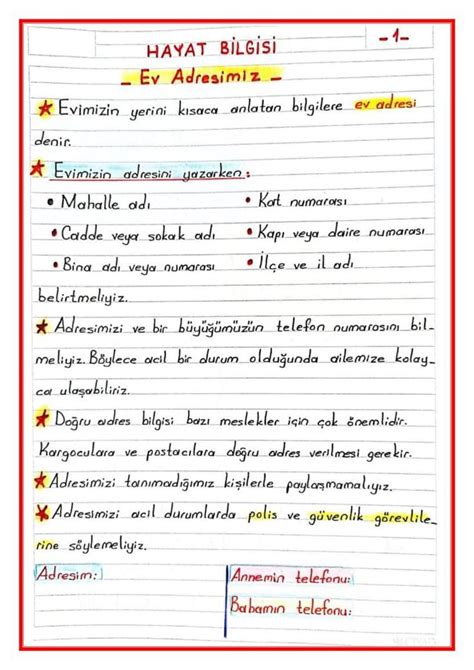 HAYAT BİLGİSİ
-1-
- Ev Adresimiz -
★ Evimizin yerini kısaca anlatan bilgilere ev adresi
denir.
★ Evimizin adresini yazarken:
• Mahalle adı • Kat numarası
• Cadde veya sokak adı • Kapı veya daire numarası
• Bina adı veya numarası • İlçe ve il adı
belirtmeliyiz.
★ Adresimizi ve bir büyüğümüzün telefon numarasını bil-
meliyiz. Böylece acil bir durum olduğunda ailemize kolay-
ca ulaşabiliriz.
★ Doğru adres bilgisi bazı meslekler için çok önemlidir.
Kargoculara ve postacılara doğru adres verilmesi gerekir.
★ Adresimizi tanımadığımız kişilerle paylaşmamalıyız.
★ Adresimizi acil durumlarda polis ve güvenlik görevlile-
rine söylemeliyiz.
Adresim:
Annemin telefonu:
Babamın telefonu: